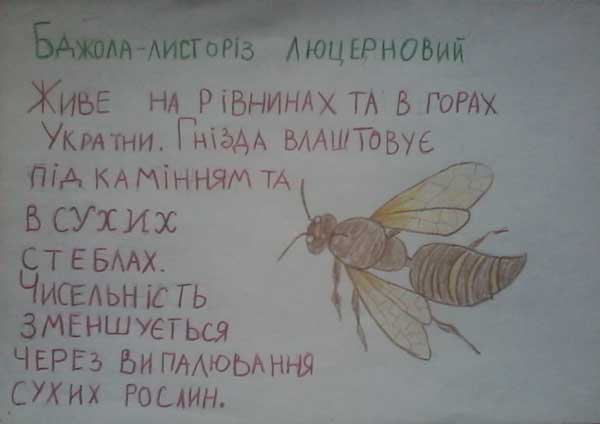 Бджола-листоріз люцерновий
Живе на рівнинах та в горах
України. Гнізда влаштовує
під камінням та
в сухих
стеблах.
Чисельність
зменшується
через випалювання
сухих рослин.